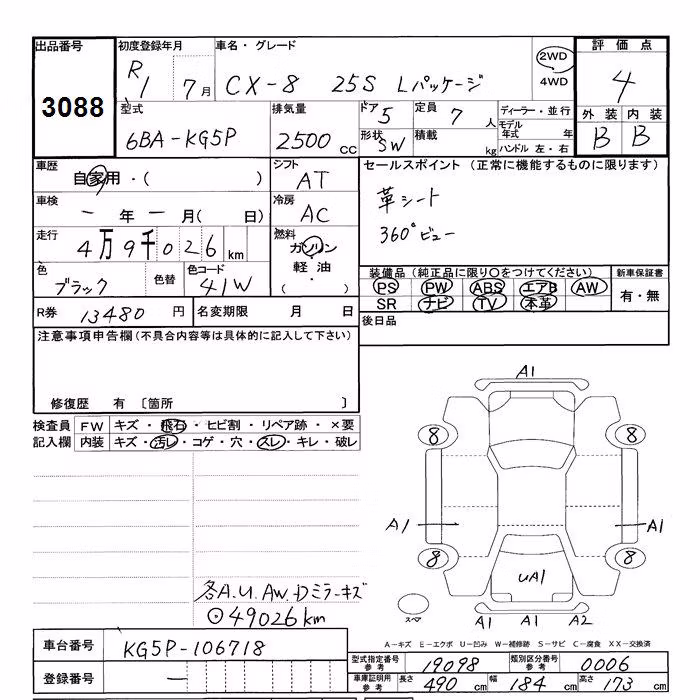 出品番号 初度登録年月 車名・グレード 評価点
3088 R1 7月 CX-8 25S Lパッケージ 2WD 4WD 4
型式 排気量 ドア 5 定員 7人 ディーラー・並行 外装 内装
6BA-KG5P 2500cc 形状 SW 積載 kg モデル年式 年 ハンドル 左・右 B B
車歴 自家用・( ) シフト AT セールスポイント (正常に機能するものに限ります)
車検 ー年ー月( 日) 冷房 AC 革シート
走行 4万9千026km 燃料 ガソリン 360°ビュー
軽油・( )
色 ブラック 色替 色コード 41W 装備品(純正品に限り○をつけてください) 新車保証書
PS PW ABS エアB AW 有・無
SR ナビ TV 本革
R券 13480円 名変期限 月 日 後日品
注意事項申告欄(不具合内容等は具体的に記入して下さい)
修復歴 有 〔箇所 〕
検査員 FW キズ・飛石・ヒビ割・リペア跡・×要
記入欄 内装 キズ・汚レ・コゲ・穴・スレ・キレ・破レ
A1
8 8
A1 A1
8 8
UA1
スペア A1 A1 A2
各A.U.AW.Dミラーキズ
⊙49026km
A-キズ E-エクボ U-凹み W-補修跡 S-サビ C-腐食 XX-交換済
車台番号 KG5P-106718
型式指定番号 参考 19098 類別区分番号 参考 0006
登録番号 ー
車庫証明用 参考 長さ 490cm 幅 184cm 高さ 173cm